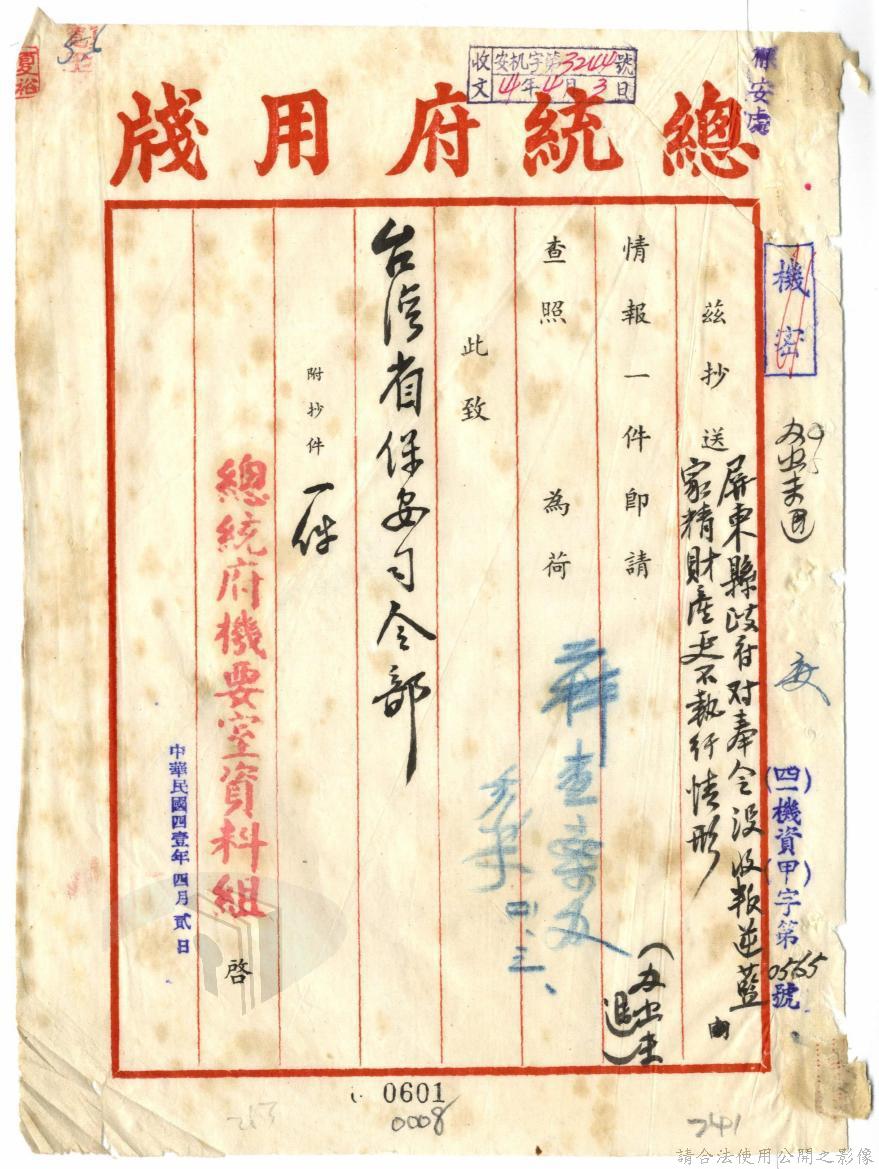 總統府用牋
保安處
收文 安机字第3244號
41年4月3日
夏裕
機密
(四一)機資(甲)字第0565號
茲抄送
屏東縣政府對奉令沒收叛逆藍
家精財產延不執行情形
由
情報一件即請
查照 為荷
此致
台湾省保安司令部
附抄件 一件
總統府機要室資料組
啓
中華民國四壹年四月貳日
四、三、
0601
0008
253
241
請合法使用公開之影像